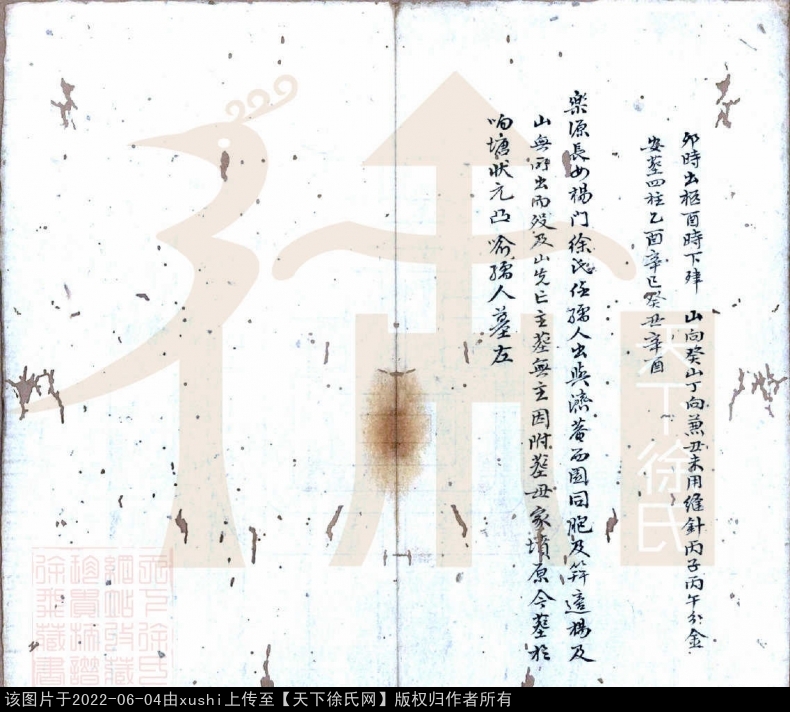 卯時出柩酉時下肂　山向癸山丁向兼丑未用縫針丙子丙午分金
安塟四柱乙酉辛巳癸丑辛酉
楽源長女楊门徐氏任孺人出與濟菴西園同胞及笄適楊及
山無所出而殁及山先亡主塟無主因附塟母家墳原今塟於
响塘状元凸喻孺人墓左
天下徐氏
该图片于2022-06-04由xushi上传至【天下徐氏网】版权归作者所有